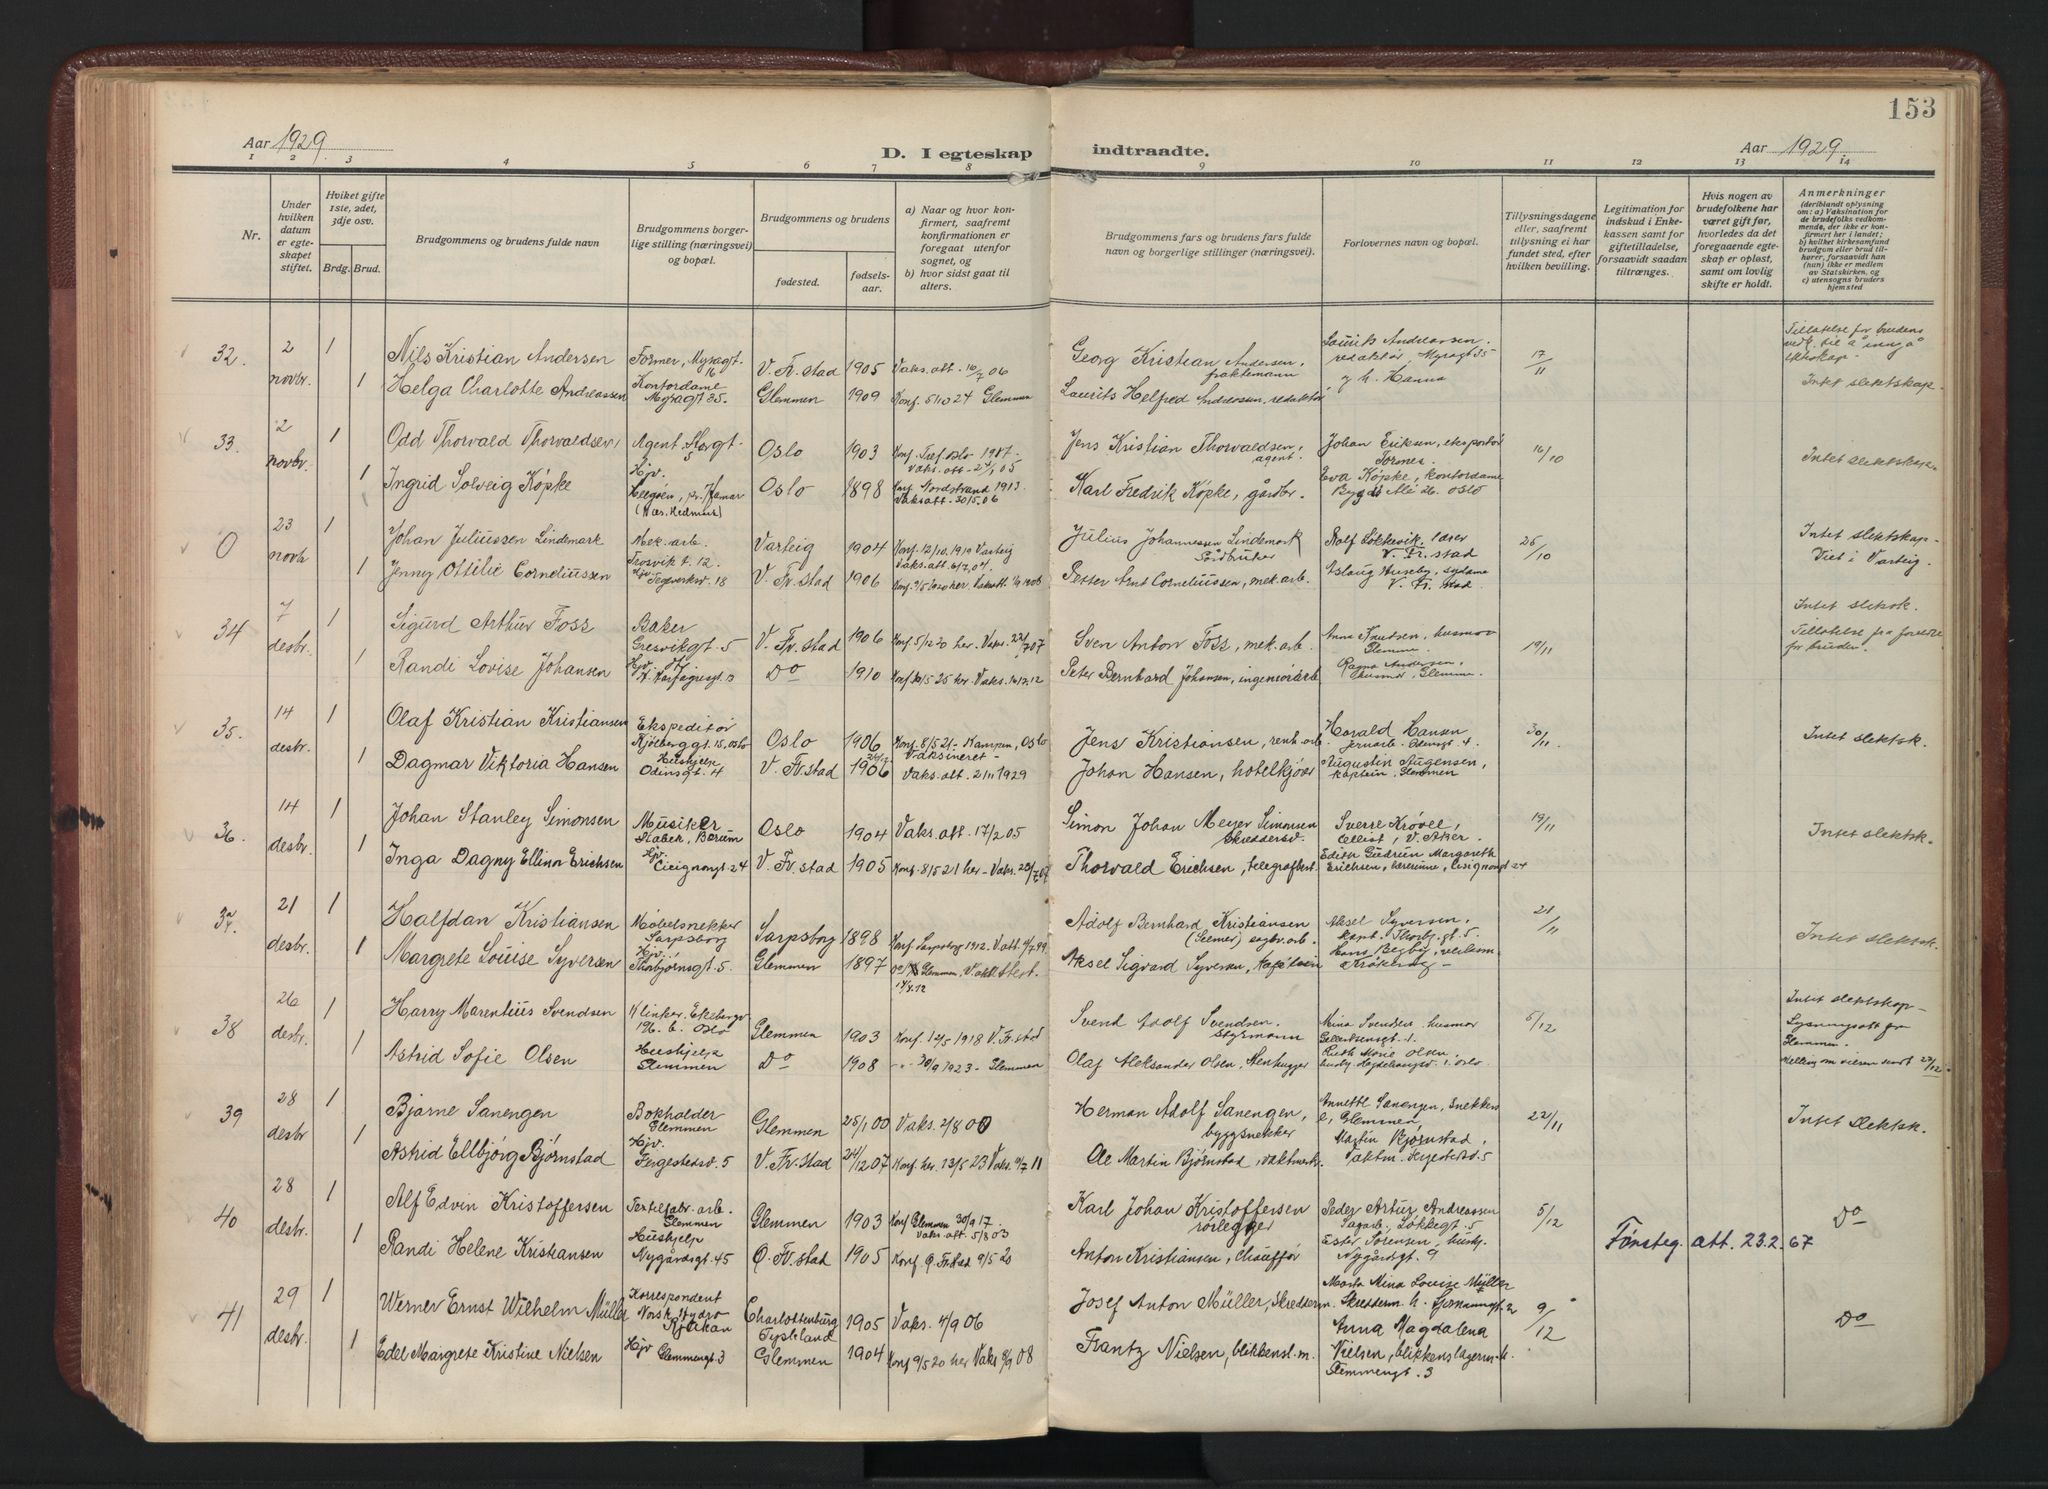 153
Aar 1929
D. I egteskap indtraadte.
Aar 1929
1 2 3 4 5 6 7 8 9 10 11 12 13 14
Nr.
Under hvilken datum er egteskapet stiftet.
Hviket gifte 1ste, 2det, 3dje osv.
Brdg. Brud.
Brudgommens og brudens fulde navn
Brudgommens borgerlige stilling (næringsvei) og bopæl.
Brudgommens og brudens
fødested.
fødselsaar.
a) Naar og hvor konfirmert, saafremt konfirmationen er foregaat utenfor sognet, og
b) hvor sidst gaat til alters.
Brudgommens fars og brudens fars fulde navn og borgerlige stillinger (næringsvei).
Forlovernes navn og bopæl.
Tillysningsdagene eller, saafremt tillysning ei har fundet sted, efter hvilken bevilling.
Legitimation for indskud i Enkekassen samt for giftetilladelse, forsaavidt saadan tiltrænges.
Hvis nogen av brudefolkene har været gift før, hvorledes da det foregaaende egteskap er opløst, samt om lovlig skifte er holdt.
Anmerkninger (deriblandt oplysning om: a) Vaksination for de brudefolks vedkommende, der ikke er konfirmert her i landet; b) hvilket kirkesamfund brudgom eller brud tilhører, forsaavidt han (hun) ikke er medlem av Statskirken, og c) utensogns bruders hjemsted
32. 2 novbr. 1 Nils Kristian Andersen Former, Myragt. 16 V. Fr. stad 1905 Vaks. att. 16/7 06 Georg Kristian Andersen, fraktemann Laurits Andreassen, redaktør, Myragt 35 17/11 Tillatelse for brudens vedk. til å inngå ekteskap.
1 Helga Charlotte Andreassen Kontordame Myragt 35. Glemmen 1909 Konf. 5/10 24 Glemmen Laurits Helfred Andreassen, redaktør g. h. Hanna Intet slektskap.
33. 2 novbr. 1 Odd Thorvald Thorvaldsen Agent Storgt. 5 Oslo 1903 Jens Kristian Thorvaldsen, agent. Johan Eriksen, ekspeditør 16/10 Intet slektskap
1 Ingrid Solveig Köpke Hjv. Oslo 1898 Konf Nordstrand 1913. Vaks att. 30/5.06 Karl Fredrik Köpke, gårdbr. Eva Köpke, kontordame Bygdö Alé 26. Oslo
0 23 novb 1 Johan Juliussen Lindemark Mek. arb. Trosvik t. 12. Varteig 1904 Konf. 12/10. 1919 Varteig Julius Johannessen Lindemark Gårdbruker Rolf Løkkevik lærer V. Fr. stad 26/10 Intet slektskap- Viet i Varteig.
1 Jenny Ottilie Corneliussen Hjv. Teglverksv. 18 V. Fr. stad 1906 Petter Arnt Corneliussen, mek. arb. Aslaug Huseby, sydame V. Fr. stad
34 7 desbr. 1 Sigurd Arthur Foss Baker Gresvikgt. 5 V. Fr. stad 1906 Konf 5/12 20 her. Vaks. 22/7 07 Sven Anton Foss, mek. arb. Anna Knudsen, husmor Glemmen. 19/11 Intet slektsk. Tillatelse fra foreldre for bruden.
1 Randi Lovise Johansen Hjv. H. Hårfagresgt. 13 Do 1910 Konf 30/5 25 her. Peter Bernhard Johansen, ingeniörarb Ragna Andersen, husmor, Glemmen.
35. 14 desbr. 1 Olaf Kristian Kristiansen Ekspeditör Kjölberggt. 15, Oslo Oslo 1906 Konf. 8/5 21 - Kampen, Oslo Vaksineret - Jens Kristiansen, renh. arb. Harald Hansen Jernarb. Odinsgt. 4 30/11. Intet slektsk.
1 Dagmar Viktoria Hansen Hushjelp Odinsgt. 4 V. Fr. stad 1906 Vaks. att. 2/11 1929 Johan Hansen, hotelkjører Augustin Augensen, kaptein, Glemmen
36. 14 desbr. 1 Johan Stanley Simonsen Musiker Stabek, Bærum Oslo 1904 Vaks. att. 17/2 05 Simon Johan Meyer Simonsen Skreddersv. Sverre Krövel, Cellist, V. Aker 19/11 Intet slektsk.
1 Inga Dagny Ellinor Erichsen Hjv. Cicignongt 24 V. Fr. stad 1905 Konf. 8/5 21 her - Vaks. 20/7 07 Thorvald Erichsen, telegrafbest. Edith Gudrun Margareth Erichsen, lærerinne, Cicignongt 24
37. 21 desbr. 1 Halfdan Kristiansen Möbelsnekker Sarpsborg Sarpsborg 1898 Konf Sarpsborg 1912. V. att. 4/7.99 Adolf Bernhard Kristiansen (Glemmen) sagbr. arb. Aksel Syversen, kapt. Thorbj. gt. 5 21/11 Intet slektsk.
1 Margrete Louise Syversen Hjv. Thorbjörnsgt. 5. Glemmen 1897 Aksel Sigvard Syversen, Kaptein Hans Begby
38 26 desbr. 1 Harry Marentius Svendsen Klinker, Ekebergv 196. b. Oslo Glemmen 1903 Konf. 12/5 1918 V. Fr. stad Svend Adolf Svendsen, styrmann Mina Svendsen, husmor 5/12 Intet slektskap- Lysningsatt fra Glemmen.
1 Astrid Sofie Olsen Hushjelp Glemmen Do 1908 - " - 30/9 1923 - Glemmen Olaf Aleksander Olsen, Stenhugger Ruth Marie Olsen, Melding om vielsen sendt 27/12.
39 28 desbr. 1 Bjarne Sanengen Bokholder Glemmen Glemmen 25/1 00 Vaks. 2/8 00 Herman Adolf Sanengen, byggsnekker Annette Sanengen, Glemmen 22/11 Intet slektsk.
1 Astrid Ellbjörg Björnstad Hjv. Fergestedsv. 5 V. Fr. stad 24/12 07 Konf. her. 13/5 23 Vaks. 9/7 11 Ole Martin Björnstad, vaktmestr. Martin Björnstad, vaktm. Fergestedsv. 5
40 28 desbr. 1 Alf Edvin Kristoffersen Textilfabr. arb. Glemmen Glemmen 1903 Konf Glemmen 30/9 17. Vaks. att. 5/8 03 Karl Johan Kristoffersen rörlegger Peder Artur Andreassen Sagarb., Løkkegt. 5 5/12 Do
1 Randi Helene Kristiansen Hushjelp Nygårdsgt. 45 Ø. Fr. stad 1905 Konf. Ø. Fr. stad 9/5 20 Anton Kristiansen, Chauffør Ester Sörensen, hushj. Nygårdsgt. 9 Fönsteg. att. 23.2.67
41 29 desbr. 1 Werner Ernst Wilhelm Müller Korrespondent Norsk Hydro Rjukan Charlottenburg Tyskland 1905 Vaks. 4/9 06 Josef Anton Müller, Skredderm. Marta Mina Louise Müller Skredderm. h. 9/12 Do
1 Edel Margrete Kristine Nielsen Hjv Glemmengt. 3 Glemmen 1904 Konf 9/5 20 her Vaks 9/9 08 Frantz Nielsen, blikkensl. m. Anna Magdalena Nielsen, blikkenslagerm. h. Glemmengt. 3